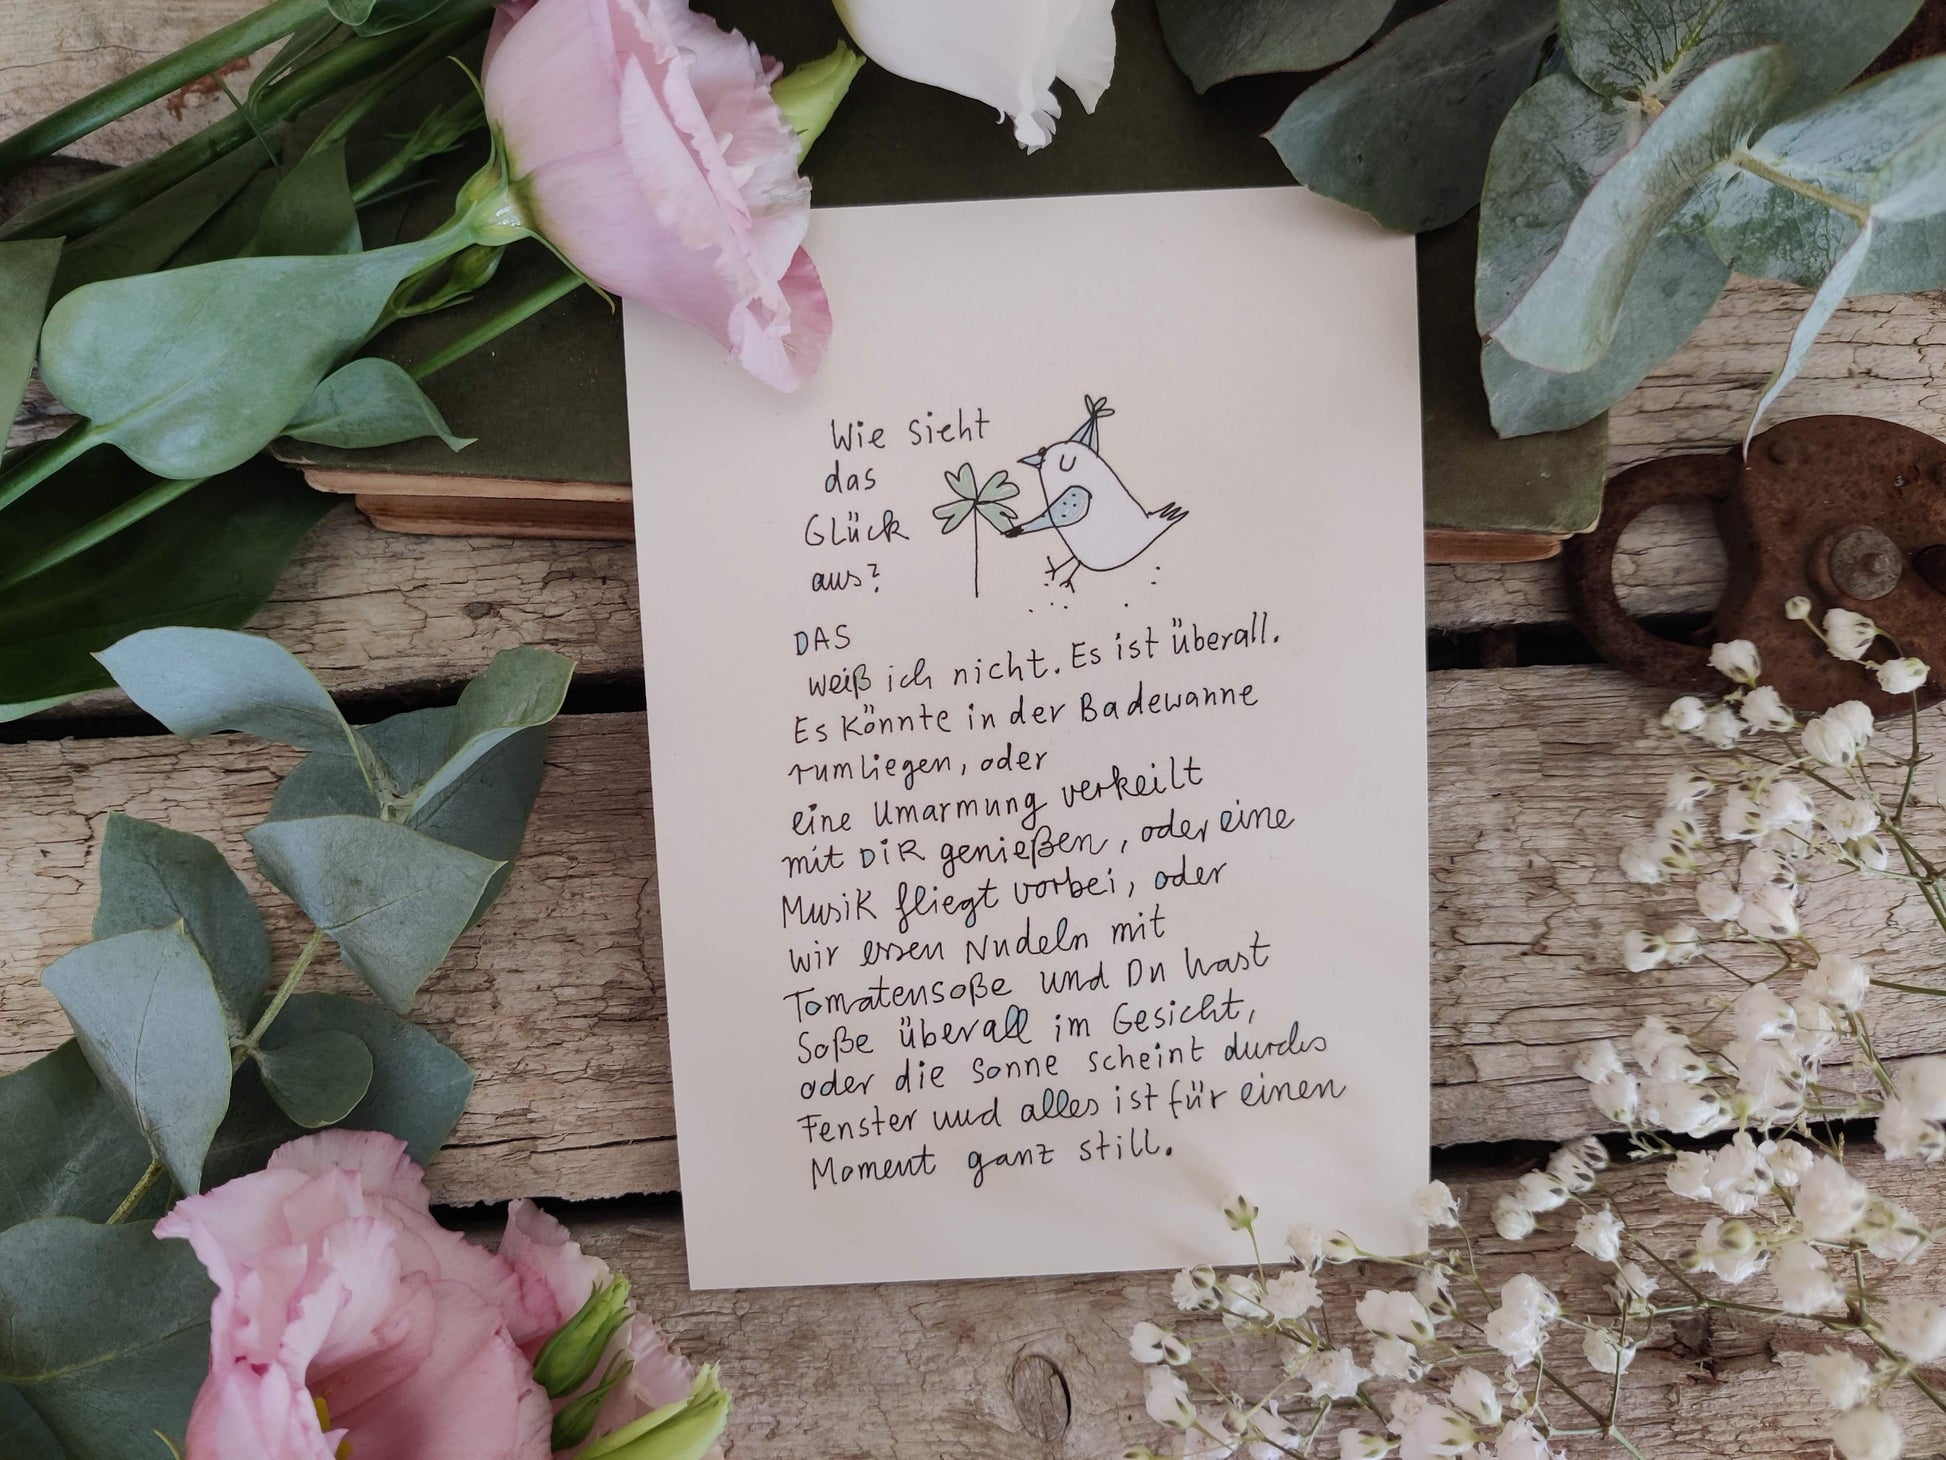 Wie sieht
das
Glück
aus?
DAS
weiß ich nicht. Es ist überall.
Es könnte in der Badewanne
rumliegen, oder
eine Umarmung verkeilt
mit DiR genießen, oder eine
Musik fliegt vorbei, oder
wir essen Nudeln mit
Tomatensoße und Du hast
Soße überall im Gesicht,
oder die Sonne scheint durchs
Fenster und alles ist für einen
Moment ganz still.